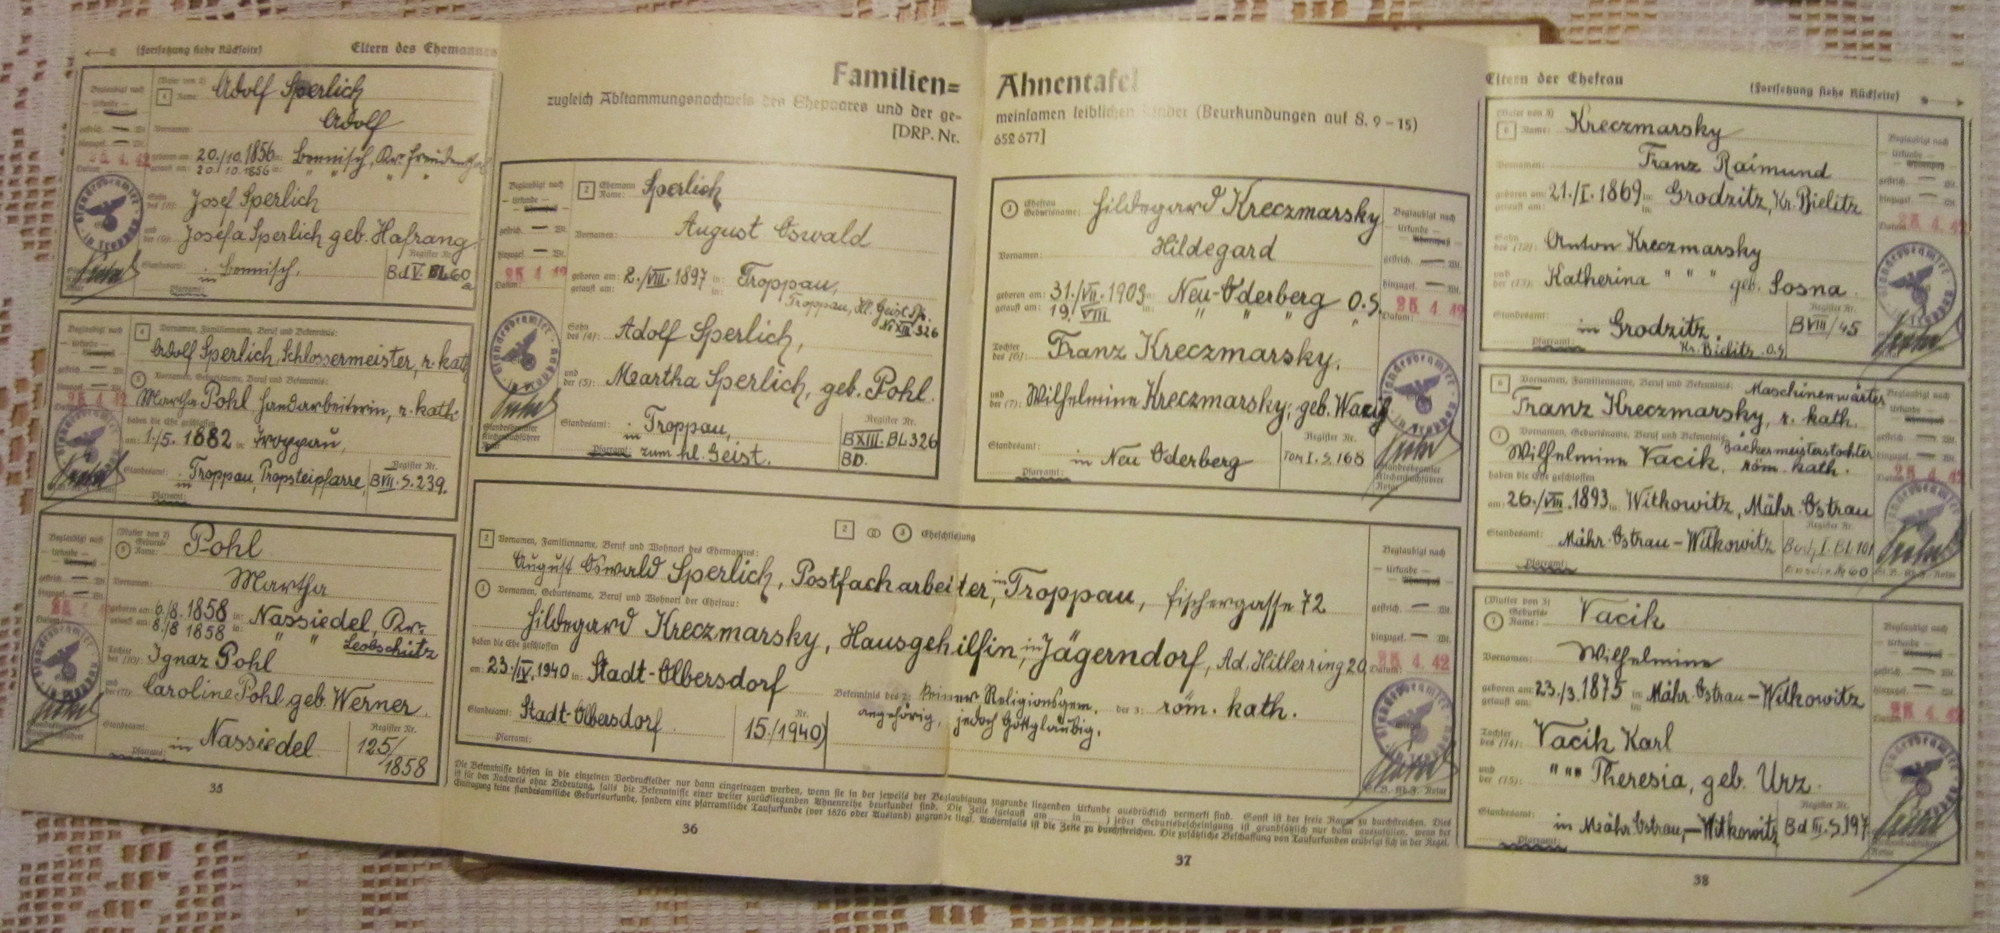 (Fortsetzung siehe Rückseite)
Eltern des Ehemannes
(Vater von 2)
4 Name: Adolf Sperlich
Vornamen: Adolf
geboren am: 20./10.1856 in: Bennisch, Kr. Freudenthal
getauft am: 20.10.1856 in: " " "
Sohn des (8): Josef Sperlich
und der (9): Josefa Sperlich geb. Hafrang
Standesamt: in Bennisch,
Pfarramt:
Register Nr. Bd V. Bl.60a
Beglaubigt nach
Urkunde
gestrich. — Wt.
hinzugef. — Wt.
25.4.42
Datum:
4 Vornamen, Familienname, Beruf und Bekenntnis:
Adolf Sperlich, Schlossermeister, r. kath.
5 Vornamen, Geburtsname, Beruf und Bekenntnis:
Martha Pohl Handarbeiterin, r. kath.
haben die Ehe geschlossen
am: 1./5. 1882 in Troppau,
Standesamt: in Troppau, Propsteipfarre,
Pfarramt:
Register Nr. B VII. S. 239.
25.4.42
Pohl
(Mutter von 2)
5 Geburts-Name:
Vornamen: Martha
geboren am: 6./8. 1858 in: Nassiedel, Kr.
getauft am: 8./8 1858 in: " " Leobschütz
Tochter des (10): Ignaz Pohl
und der (11): Caroline Pohl geb. Werner.
Standesamt: in Nassiedel
Pfarramt:
Register Nr. 125/1858
35
Familien=
zugleich Abstammungsnachweis des Ehepaares und der ge-
[DRP. Nr.
Beglaubigt nach
— Urkunde
gestrich. — Wt.
hinzugef. — Wt.
25 4 42
Datum:
2 Ehemann Name: Sperlich
Vornamen: August Oswald
geboren am: 2./VIII. 1897 in: Troppau,
getauft am: in: Troppau, Hl. Geist Pf.
XIII 326
Sohn des (4): Adolf Sperlich,
und der (5): Martha Sperlich, geb. Pohl.
Standesamt: in Troppau,
Pfarramt: zum hl. Geist.
Register Nr. BXIII. BL326
BD.
Ahnentafel
meinsamen leiblichen Kinder (Beurkundungen auf S. 9-15)
652 677]
3 Ehefrau Geburtsname: Hildegard Kreczmarsky
Vornamen: Hildegard
geboren am: 31./VII. 1909 in: Neu-Oderberg O.S.
getauft am: 19./VIII " " "
Tochter des (6): Franz Kreczmarsky.
und der (7): Wilhelmine Kreczmarsky; geb. Wazig
Standesamt: in Neu Oderberg
Pfarramt:
Register Nr. Tom I. S. 168
Beglaubigt nach
— Urkunde
gestrich. — Wt.
hinzugef. — Wt.
25 4 42
Datum:
2 ∞ 3 Eheschließung
2 Vornamen, Familienname, Beruf und Wohnort des Ehemannes:
August Oswald Sperlich, Postfacharbeiter, in Troppau, Fischergasse 72
3 Vornamen, Geburtsname, Beruf und Wohnort der Ehefrau:
Hildegard Kreczmarsky, Hausgehilfin, in Jägerndorf, Ad. Hitlerring 20
haben die Ehe geschlossen
am: 23./IV. 1940 in: Stadt-Olbersdorf
Bekenntnis des 2: Keiner Religionsgem. angehörig, jedoch Gottgläubig. der 3: röm. kath.
Standesamt: Stadt-Olbersdorf
Pfarramt:
Nr. 15./1940
Beglaubigt nach
— Urkunde
gestrich. — Wt.
hinzugef. — Wt.
25.4.42
Datum:
Die Bekenntnisse dürfen in die einzelnen Vordruckfelder nur dann eingetragen werden, wenn sie in der jeweils der Beglaubigung zugrunde liegenden Urkunde ausdrücklich vermerkt sind. Sonst ist der freie Raum zu durchstreichen. Dies
ist für den Nachweis ohne Bedeutung, falls die Bekenntnisse einer weiter zurückliegenden Ahnenreihe beurkundet sind. Die Zeile (getauft am in ) jeder Geburtsbescheinigung ist grundsätzlich nur dann auszufüllen, wenn der
Eintragung keine standesamtliche Geburtsurkunde, sondern eine pfarramtliche Taufurkunde (vor 1876 oder Ausland) zugrunde liegt. Andernfalls ist die Zeile zu durchstreichen. Die zusätzliche Beschaffung von Taufurkunden erübrigt sich in der Regel.
36
37
Eltern der Ehefrau
(Fortsetzung siehe Rückseite)
(Vater von 3)
6 Name: Kreczmarsky
Vornamen: Franz Raimund
geboren am: 21./I. 1869 in: Grodzitz, Kr. Bielitz
getauft am: in:
Sohn des (12): Anton Kreczmarsky
und der (13): Katherina " " " geb. Sosna.
Standesamt: in Grodzitz.
Pfarramt: Kr. Bielitz O.S
Register Nr. BVIII/45
Beglaubigt nach
Urkunde
gestrich. — Wt.
hinzugef. — Wt.
25.4.42
6 Vornamen, Familienname, Beruf und Bekenntnis: Maschinenwärter
Franz Kreczmarsky, r. kath.
7 Vornamen, Geburtsname, Beruf und Bekenntnis: Bäckermeisterstochter
Wilhelmine Vacik, röm. kath.
haben die Ehe geschlossen
am: 26./VIII. 1893 in: Witkowitz, Mähr. Ostrau
Standesamt: Mähr. Ostrau-Witkowitz
Pfarramt:
Register Nr. Buch I. Bl. 101
25.4.42
(Mutter von 3)
7 Geburts-Name: Vacik
Vornamen: Wilhelmine
geboren am: 23./3. 1875 in Mähr. Ostrau-Witkowitz
getauft am: in
Tochter des (14): Vacik Karl
und der (15): " " " Theresia, geb. Urz.
Standesamt: in Mähr. Ostrau,-Witkowitz
Pfarramt:
Register Nr. Bd III. S. 197
Beglaubigt nach
Urkunde
gestrich. — Wt.
hinzugef. — Wt.
25.4.42
38